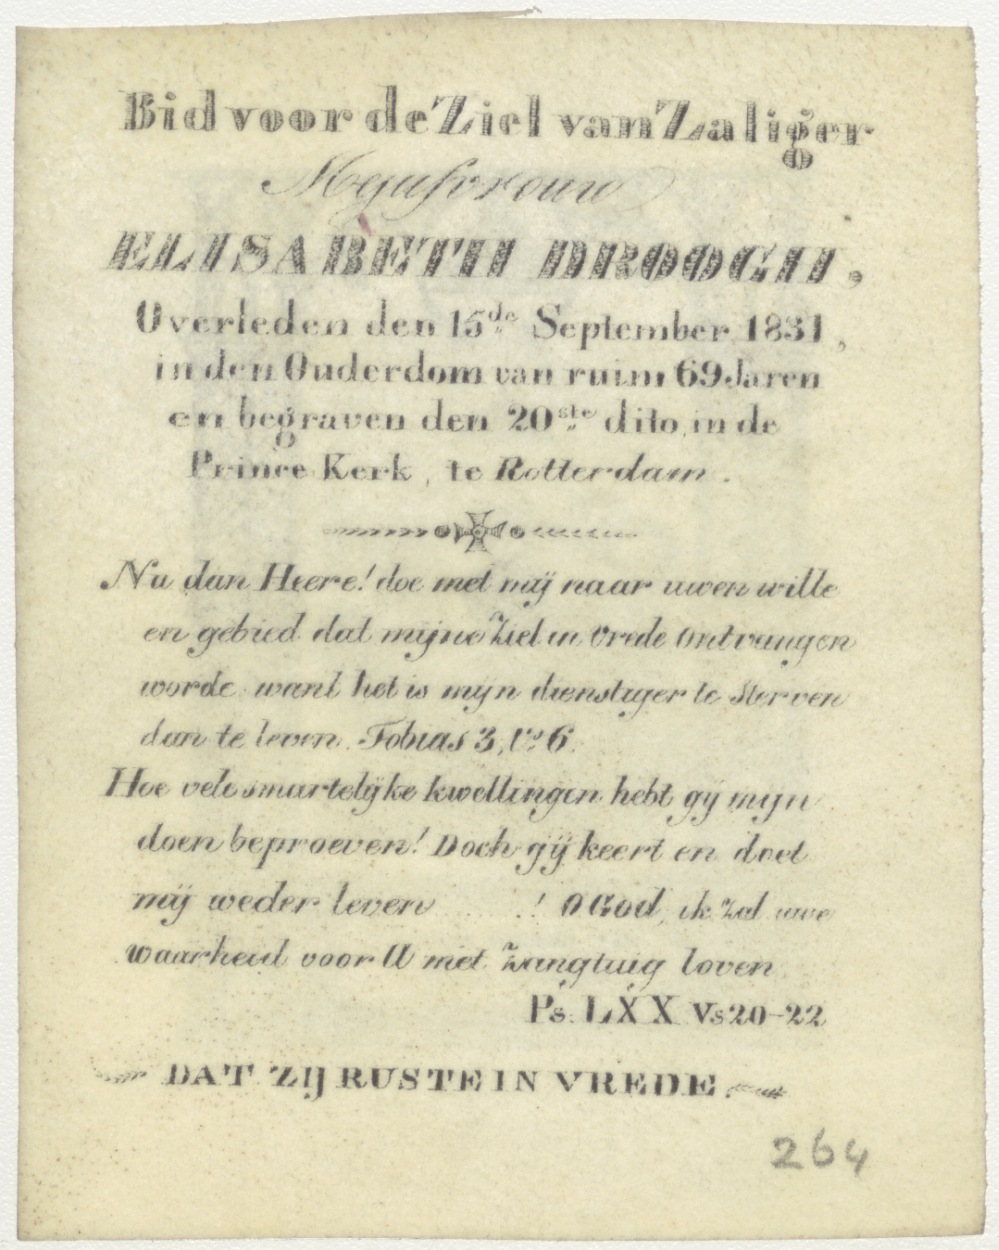 Bid voor de Ziel van Zaliger
Mejufvrouw
ELISABETH DROOGH,
Overleden den 15de September 1831,
in den Ouderdom van ruim 69 Jaren
en begraven den 20ste dito, in de
Prince Kerk, te Rotterdam.
Nu dan Heere! doe met mij naar uwen wille
en gebied dat mijne Ziel in Vrede ontvangen
worde want het is mijn dienstiger te Sterven
dan te leven. Tobias 3, Vs 6.
Hoe vele smartelijke kwellingen hebt gij mijn
doen beproeven! Doch gij keert en doet
mij weder leven .....! O God, ik zal uwe
waarheid voor U met Zangtuig loven
Ps. LXX Vs 20-22
DAT ZIJ RUSTE IN VREDE.
264